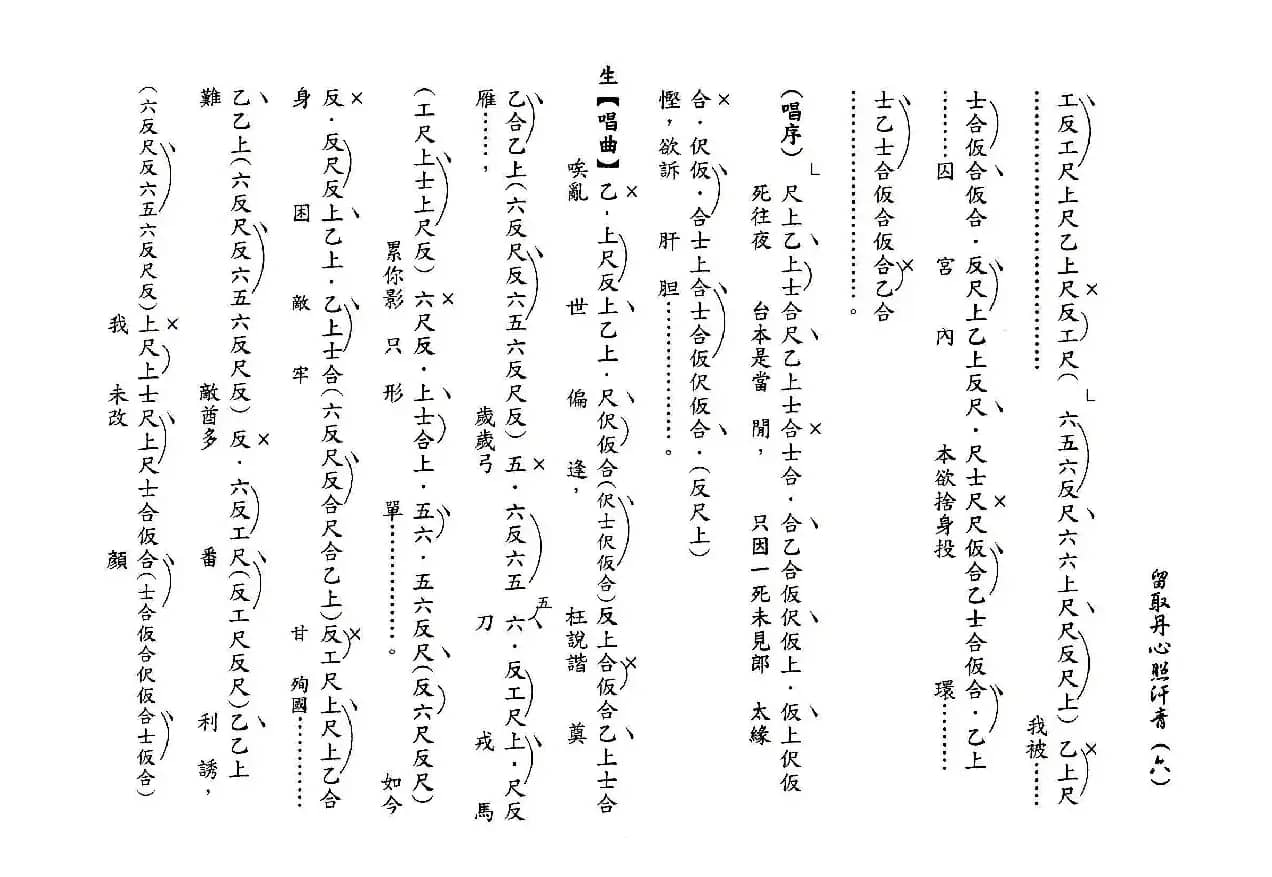 留取丹心照汗青（六）
工反工尺上尺乙上尺反工尺（　└　六五六反尺六六上尺尺反尺上）乙上尺
我被……
士合仮合仮合．反尺上乙上反尺．尺士尺尺仮合乙士合仮合．乙上
……囚　宮　內　本欲捨身投　環……
士乙士合仮合仮合乙合
……………………。
（唱序）└　尺上乙上士合尺乙上士士合士合．合乙合仮伬仮上．仮上伬仮
死往夜　台本是當　閒，　只因一死未見郎　太緣
合．伬仮．合士上合士合仮伬仮合．（反尺上）
慳，欲訴　肝　胆………………。
生【唱曲】乙．上尺反上乙上．尺伬仮合（伬士伬仮合）反上合仮合乙上士合
唉亂　世　偏　逢，　枉說諧　奠
乙合乙上（六反尺反六五六反尺反）五．六反六五　五六．反工尺上．尺反
雁……，　歲歲弓　刀　戎　馬
（工尺上士上尺反）六尺反．上士合上．五六．五六反尺（反六尺反尺）
累你影　只　形　單……………。　如今
反．反尺反上乙上．乙上士合（六反尺反合尺合乙上）反工尺上尺上乙合
身　困　敵　牢　甘　殉國…………
乙乙上（六反尺反六五六反尺反）反．六反工尺（反工尺反尺）乙乙上
難　敵酋多　番　利　誘，
（六反尺反六五六反尺反）上尺上士尺上尺士合仮合（士合仮合伬仮合士仮合）
我　未改　顏